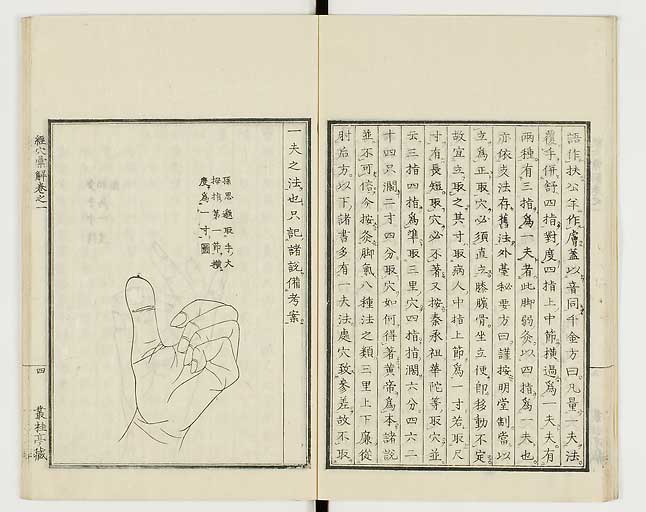 語作扶公羊作膚蓋以音同千金方曰凡量一夫法
覆手併舒四指對度四指上中節橫過爲一夫夫有
兩種有三指爲一夫者此脚弱灸以四指爲一夫也
亦依支法存舊法外臺秘要方曰謹按明堂制當以
立爲正取穴必須直立膝膭骨坐立便卽移動不定
故宜立取之其寸取病人中指上節爲一寸若取尺
寸有長短取穴必不著又按秦承祖華陀等取穴並
云三指四指爲準取三里穴四指指濶六分四六二
十四只濶二寸四分取穴如何得著黄帝爲本諸說
並不可信今按灸脚氣八種法之類三里上下廉從
肘后方以下諸書多有一夫法處穴致參差故不取
一夫之法也只記諸說備考案
孫思邈取手大
拇指第一節橫
度爲一寸圖
經穴彙解卷之一
四
叢桂亭藏